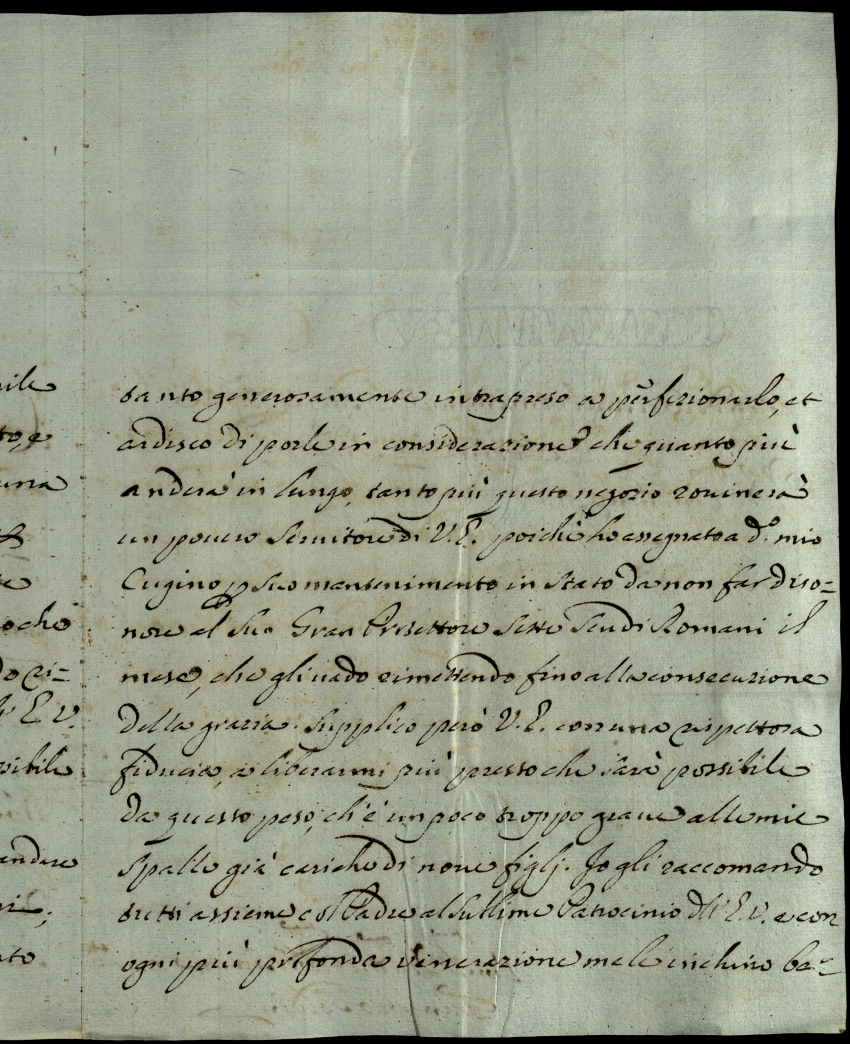 tanto generosamente intrapreso a perfezionarlo, et
ardisco di porle in considerazione che quanto più
anderà in lungo, tanto più questo negozio rovinerà
un povero Servitore di V.E. poichè ho assegnato a d.º mio
Cugino p suo mantenimento in stato da non far diso=
nore al suo Gran Protettore sette Scudi Romani il
mese, che gli vado rimettendo fino alla consecuzione
della grazia. Supplico però V.E. con una rispettosa
fiducia, a liberarmi più presto che sarà possibile
da questo peso, ch'è un poco troppo grave alle mie
spalle già cariche di nove figlj. Io gli raccomando
tutti assieme col Padre al sublime Patrocinio dll'E.V. e con
ogni più profonda venerazione me le inchino ba=
ile
to, e
una
te
oche
do ri=
E V.
sibile
endere
ri;
nto